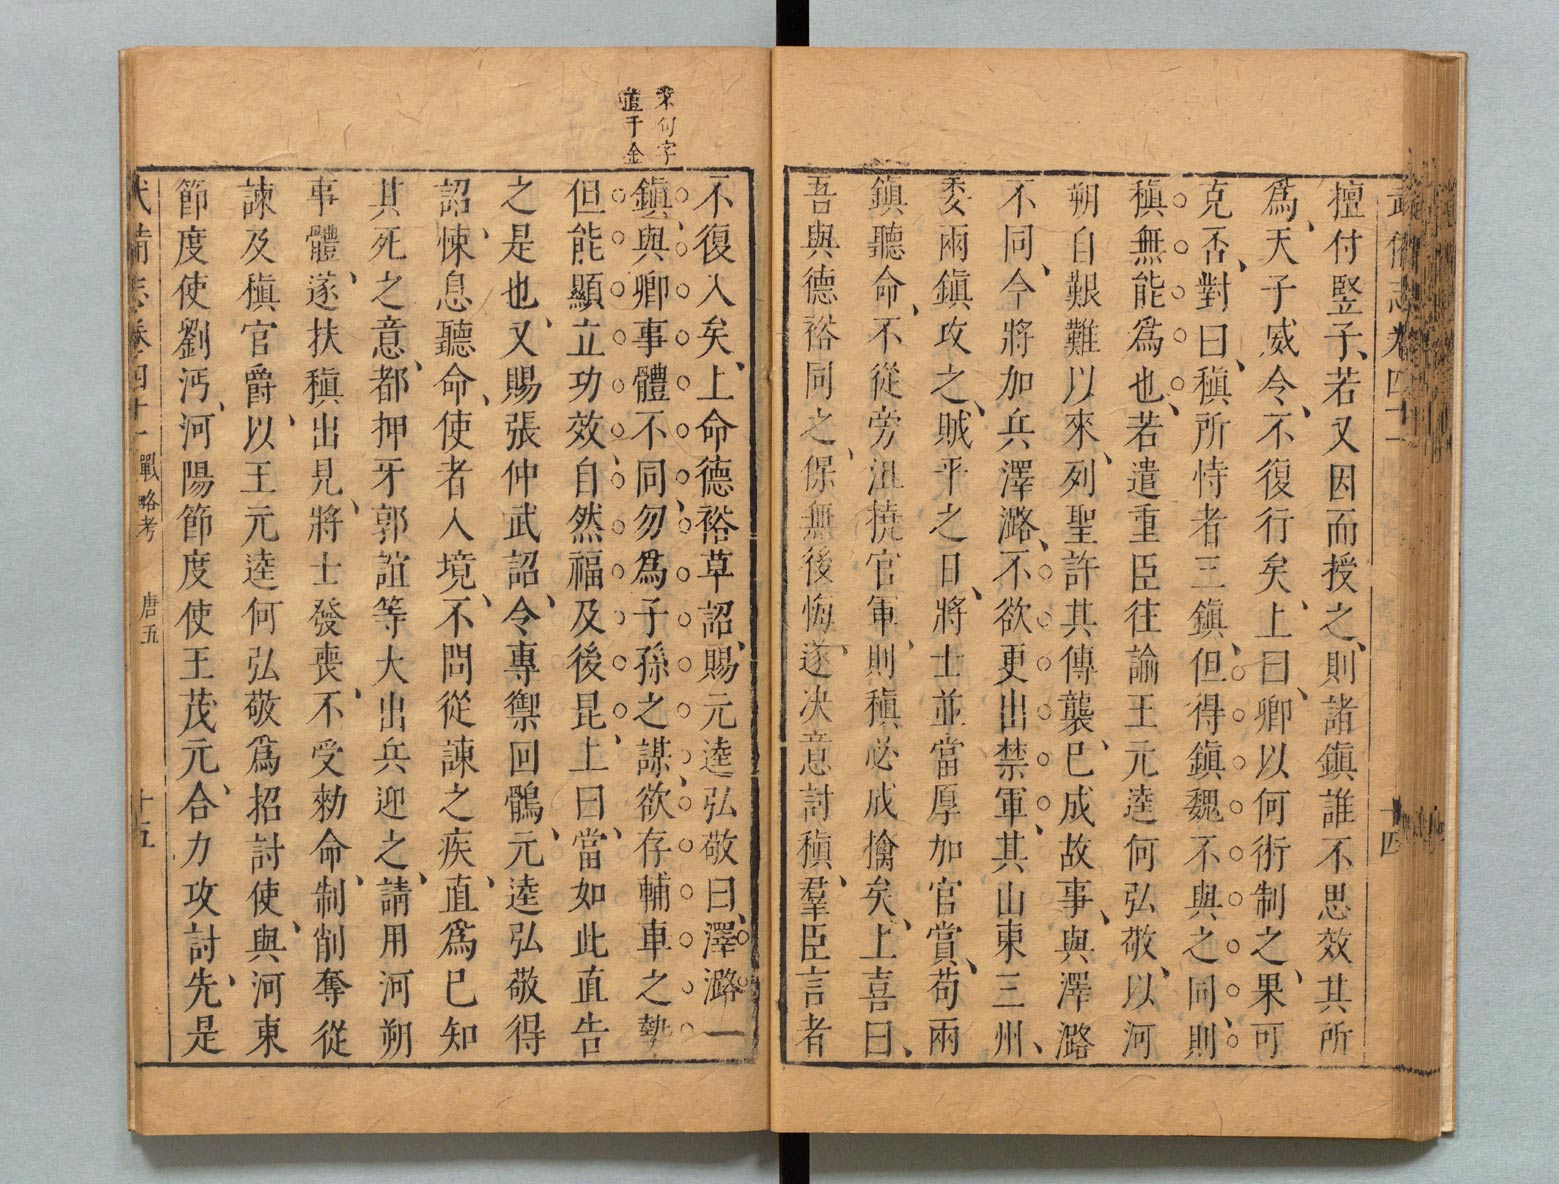 武備志卷四十一
十四
擅付竪子、若又因而授之、則諸鎮誰不思效其所
爲、天子威令、不復行矣、上曰、卿以何術制之、果可
克否、對曰、稹所恃者三鎮、但得鎮魏不與之同、則
稹無能爲也、若遣重臣往諭王元逵何弘敬、以河
朔自艱難以來、列聖許其傳襲、已成故事、與澤潞
不同、今將加兵澤潞、不欲更出禁軍、其山東三州、
委兩鎮攻之、賊平之日、將士並當厚加官賞、苟兩
鎮聽命、不從旁沮撓官軍、則稹必成擒矣、上喜曰、
吾與德裕同之、保無後悔、遂決意討稹、羣臣言者
業句字
直千金
不復入矣、上命德裕草詔、賜元逵弘敬曰、澤潞一
鎮、與卿事體不同、勿爲子孫之謀、欲存輔車之勢
但能顯立功效、自然福及後昆、上曰、當如此直告
之是也、又賜張仲武詔、令專禦回鶻、元逵弘敬得
詔、悚息聽命、使者入境、不問從諫之疾、直爲已知
其死之意、都押牙郭誼等大出兵迎之、請用河朔
事體、遂扶稹出見、將士發喪、不受勑命、制削奪從
諫及稹官爵、以王元逵何弘敬爲招討使、與河東
節度使劉沔、河陽節度使王茂元、合力攻討、先是
武備志卷四十一 戰略考 唐五
十五